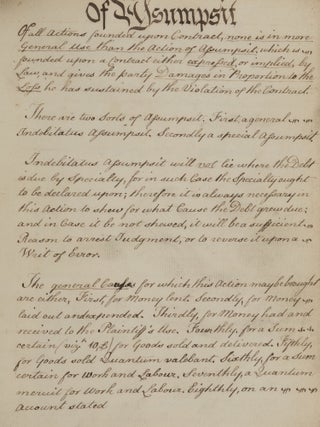 Of Assumpsit
Of all Actions founded upon Contract, none is in more
General Use than the Action of Assumpsit, which is
founded upon a Contract either expressed, or implied, by
Law, and gives the party Damages in Proportion to the
Loss he has sustained by the Violation of the Contract.
There are two Sorts of Assumpsit. First, a general
Indebitatus Assumpsit. Secondly a special Assumpsit
Indebitatus Assumpsit will not lie where the Debt
is due by Specialty, for in such Case the Specialty ought
to be declared upon; therefore it is always necessary in
this Action to shew for what Cause the Debt grew due;
and in Case it be not shewed, it will be a sufficient
Reason to arrest Judgment, or to reverse it upon a
Writ of Error.
The general Causes for which this Action may be brought
are either, First, for Money lent. Secondly, for Money
laid out and expended. Thirdly, for Money had and
received to the Plaintiff's Use. Fourthly for a Sum
certain / viz.t 10£ / for Goods sold and delivered. Fifthly,
for Goods sold Quantum valebant. Sixthly, for a Sum
certain for Work and Labour. Seventhly, a Quantum
meruit for Work and Labour. Eighthly, on an
Account stated